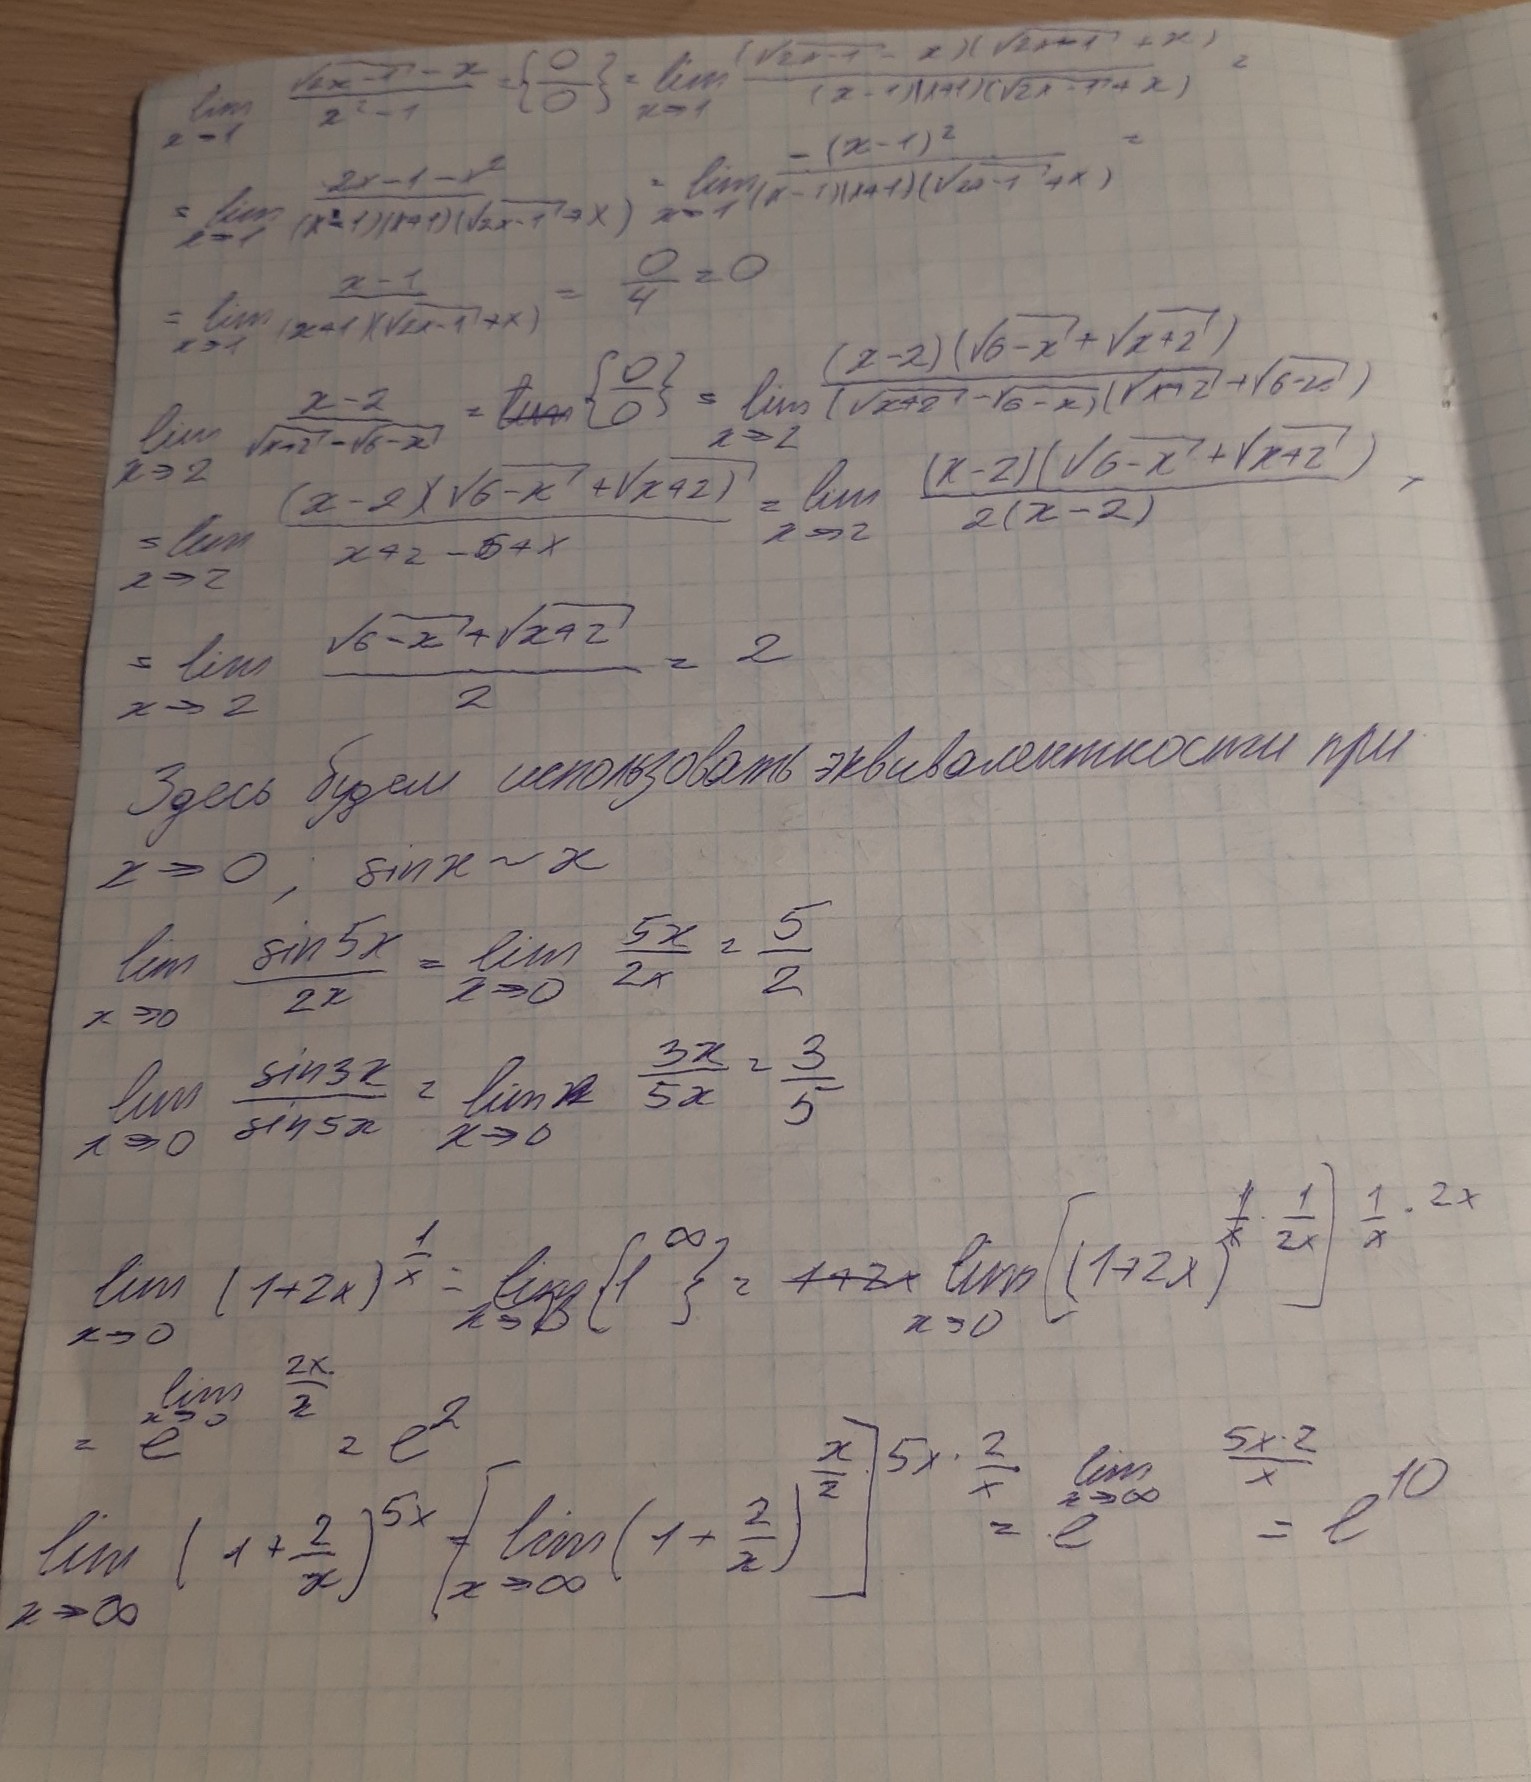 lim x→1 (√(2x-1) - x)/(x²-1) = {0/0} = lim x→1 ((√(2x-1) - x)(√(2x-1) + x))/((x-1)(x+1)(√(2x-1) + x)) =
= lim x→1 (2x-1-x²)/((x-1)(x+1)(√(2x-1) + x)) = lim x→1 (-(x-1)²)/((x-1)(x+1)(√(2x-1) + x)) =
= lim x→1 (x-1)/((x+1)(√(2x-1) + x)) = 0/4 = 0
lim x→2 (x-2)/(√(x+2) - √(6-x)) = {0/0} = lim x→2 ((x-2)(√(6-x) + √(x+2)))/((√(x+2) - √(6-x))(√(x+2) + √(6-x)))
= lim x→2 ((x-2)(√(6-x) + √(x+2)))/(x+2-6+x) = lim x→2 ((x-2)(√(6-x) + √(x+2)))/(2(x-2)) =
= lim x→2 (√(6-x) + √(x+2))/2 = 2
Здесь будем использовать эквивалентности при
x→0, sinx ~ x
lim x→0 sin5x/2x = lim x→0 5x/2x = 5/2
lim x→0 sin3x/sin5x = lim x→0 3x/5x = 3/5
lim x→0 (1+2x)^(1/x) = {1^∞} = lim x→0 [(1+2x)^(1/2x)]^(1/x · 2x)
= e^(lim x→0 2x/x) = e²
lim x→∞ (1+2/x)^(5x) = [lim x→∞ (1+2/x)^(x/2)]^(5x · 2/x) = e^(lim x→∞ 5x·2/x) = e^10